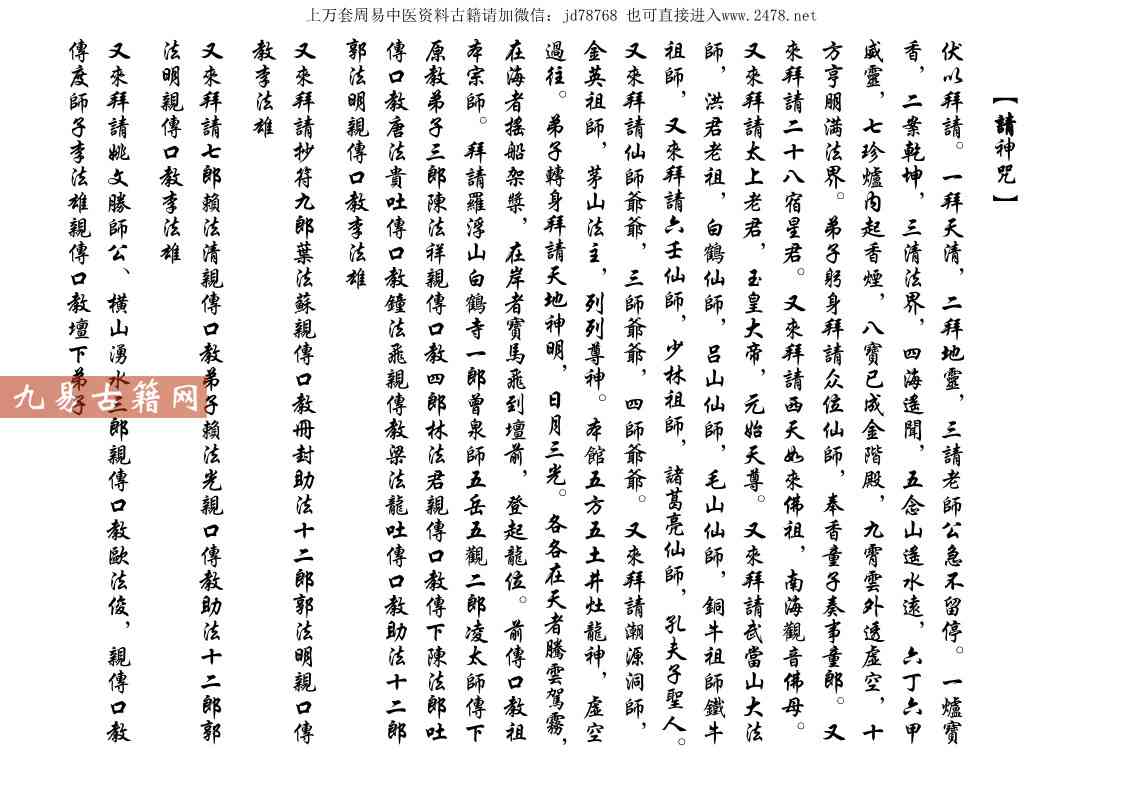 上万套周易中医资料古籍请加微信：jd78768 也可直接进入www.2478.net
【請神咒】
伏以拜請。一拜天清，二拜地靈，三請老師公急不留停。一爐寶
香，二案乾坤，三清法界，四海遙聞，五念山遙水遠，六丁六甲
威靈，七珍爐內起香煙，八寶已成金階殿，九霄雲外透虛空，十
方亨朋满法界。弟子躬身拜請众位仙師，奉香童子奏事童郎。又
來拜請二十八宿星君。又來拜請西天如來佛祖，南海觀音佛母。
又來拜請太上老君，玉皇大帝，元始天尊。又來拜請武當山大法
師，洪君老祖，白鶴仙師，吕山仙師，毛山仙師，銅牛祖師鐵牛
祖師，又來拜請六壬仙師，少林祖師，諸葛亮仙師，孔夫子聖人。
又來拜請仙師爺爺，三師爺爺，四師爺爺。又來拜請潮源洞師，
金英祖師，茅山法主，列列尊神。本館五方五土井灶龍神，虛空
過往。弟子轉身拜請天地神明，日月三光。各各在天者騰雲駕霧，
在海者搖船架槳，在岸者寶馬飛到壇前，登起龍位。前傳口教祖
本宗師。拜請羅浮山白鶴寺一郎曾泉師五岳五觀二郎凌太師傳下
原教弟子三郎陳法祥親傳口教四郎林法君親傳口教傳下陳法郎吐
傳口教唐法貴吐傳口教鐘法飛親傳教梁法龍吐傳口教助法十二郎
郭法明親傳口教李法雄
又來拜請抄符九郎葉法蘇親傳口教冊封助法十二郎郭法明親口傳
教李法雄
又來拜請七郎賴法清親傳口教弟子賴法光親口傳教助法十二郎郭
法明親傳口教李法雄
又來拜請姚文勝師公、橫山湧水三郎親傳口教歐法俊，親傳口教
傳度師子李法雄親傳口教壇下弟子
九易古籍网